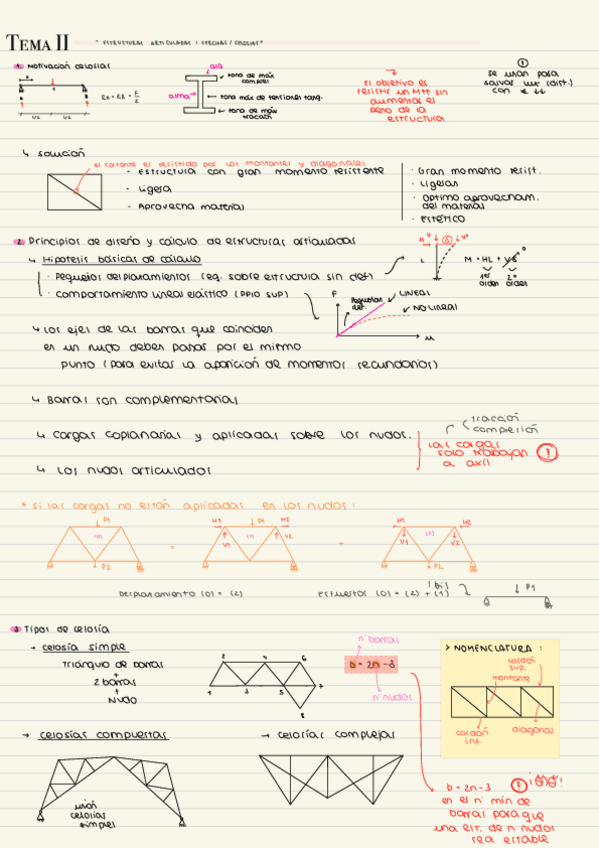 TEMA II
" ESTRUCTURAS ARTICULADAS : CERCHAS / CELOSIAS"
1. Motivación celosías
RA = RB = P/2
L/2
L/2
ala
zona de máx compres.
alma
zona máx de tensiones tang.
zona de máx tracción
El objetivo es
resistir un Mtt sin
aumentar el
peso de la
estructura
se usan para
salvar luz (dist.)
↳ solución
el cortante es resistido por los montantes y diagonales
- Estructura con gran momento resistente
- Ligera
- Aprovecha material
· Gran momento resist.
· Ligeras
· Optimo aprovecham.
del material
· Estético
2. Principios de diseño y cálculo de estructuras articuladas
↳ Hipótesis básicas de cálculo
· Pequeños desplazamientos (eq. sobre estructura sin def)
· Comportamiento lineal elástico (ppio sup)
H
V
δ
V
L
M = HL + Vδ
1er orden
2º orden
F
Pequeñas def.
LINEAL
NO LINEAL
u
↳ Los ejes de las barras que coinciden
en un nudo deben pasar por el mismo
punto (para evitar la aparición de momentos secundarios)
↳ Barras son complementarias
↳ Cargas coplanarias y aplicadas sobre los nudos.
↳ Los nudos articulados
tracción
compresión
las cargas
solo trabajan
a axil
* si las cargas no están aplicadas en los nudos :
P1
P2
=
H1
P1
H2
V1
V2
+
H1
H2
V1
V2
P2
Desplazamiento (0) = (2)
Esfuerzos (0) = (2) + (1)
1 bis
P1
3. Tipos de celosía
→ celosía simple
triángulo de barras
+
2 barras
+
nudo
1
2
3
4
5
6
7
8
n° barras
b = 2n - 3
n° nudos
> NOMENCLATURA :
cordón sup.
montante
cordón inf.
diagonal
→ celosías compuestas
unión
celosías
simples
→ celosías complejas
b = 2n - 3
es el n° mín de
barras para que
una est. de n nudos
sea estable